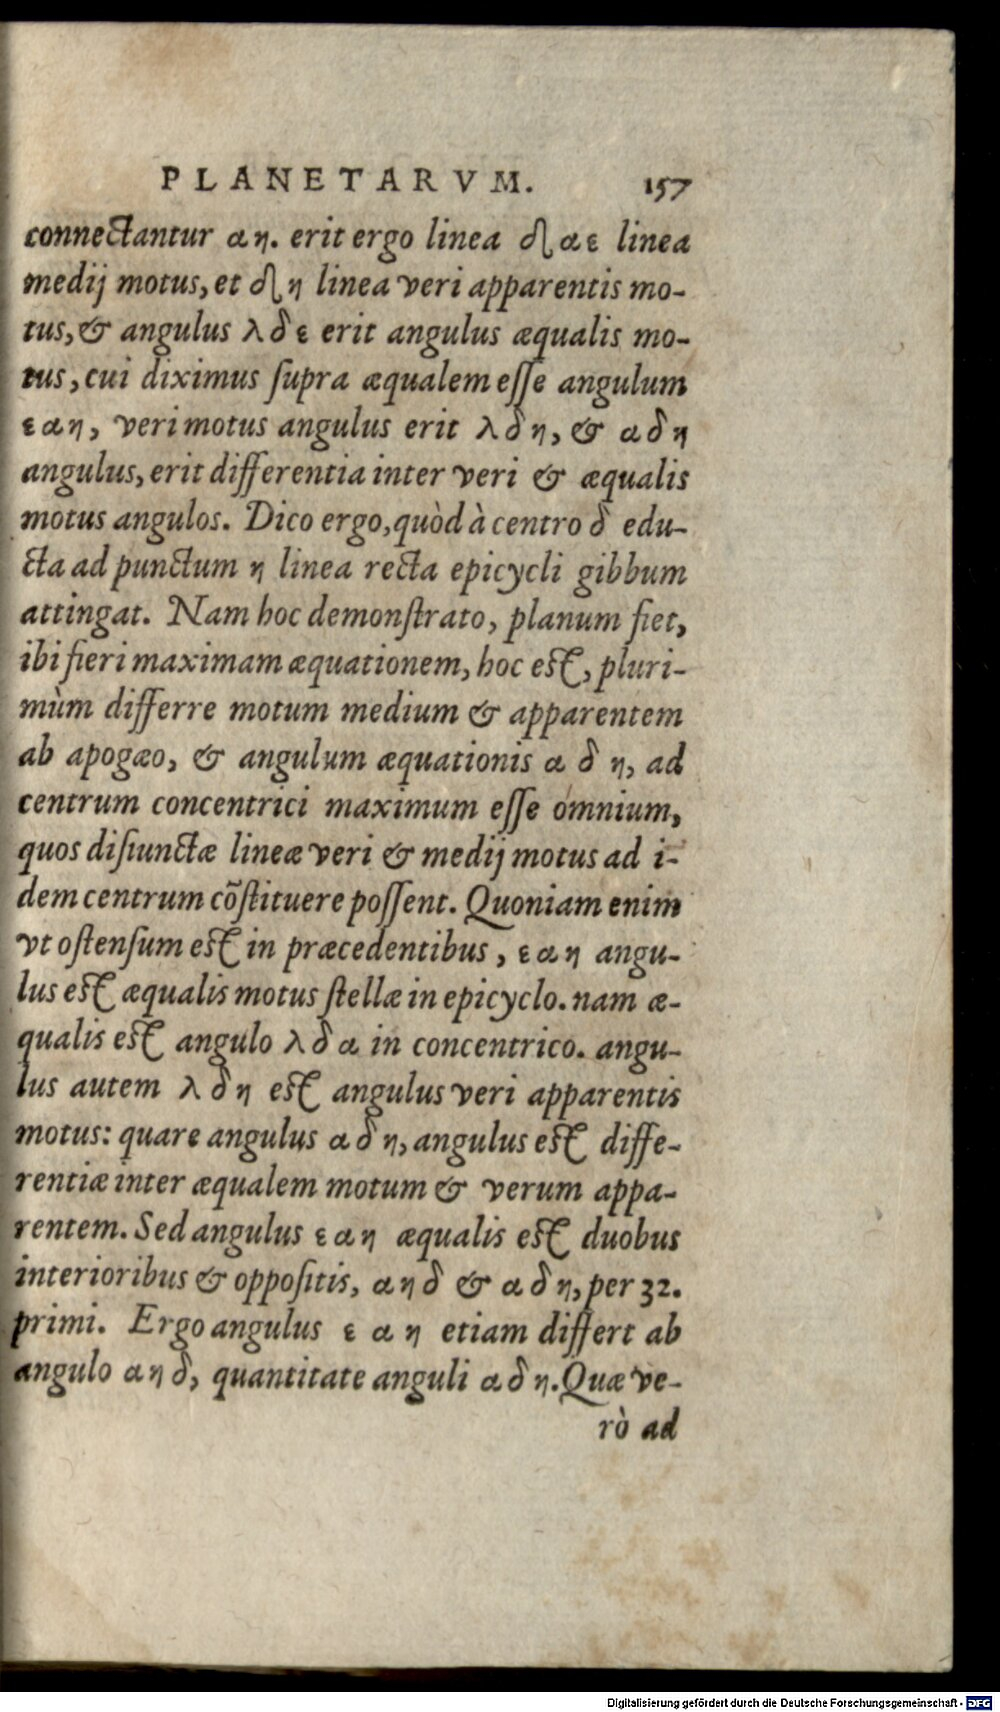 PLANETARVM. 157
connectantur αη. erit ergo linea δαε linea
medij motus, et δη linea veri apparentis mo-
tus, & angulus λδε erit angulus æqualis mo-
tus, cui diximus supra æqualem esse angulum
εαη, veri motus angulus erit λδη, & αδη
angulus, erit differentia inter veri & æqualis
motus angulos. Dico ergo, quòd à centro δ edu-
cta ad punctum η linea recta epicycli gibbum
attingat. Nam hoc demonstrato, planum fiet,
ibi fieri maximam æquationem, hoc est, pluri-
mùm differre motum medium & apparentem
ab apogæo, & angulum æquationis α δ η, ad
centrum concentrici maximum esse omnium,
quos disiunctæ lineæ veri & medij motus ad i-
dem centrum cõstituere possent. Quoniam enim
vt ostensum est in præcedentibus, εαη angu-
lus est æqualis motus stellæ in epicyclo. nam æ-
qualis est angulo λδα in concentrico. angu-
lus autem λδη est angulus veri apparentis
motus: quare angulus αδη, angulus est diffe-
rentiæ inter æqualem motum & verum appa-
rentem. Sed angulus εαη æqualis est duobus
interioribus & oppositis, αηδ & αδη, per 32.
primi. Ergo angulus ε α η etiam differt ab
angulo αηδ, quantitate anguli αδη. Quæ ve-
rò ad
Digitalisierung gefördert durch die Deutsche Forschungsgemeinschaft - DFG